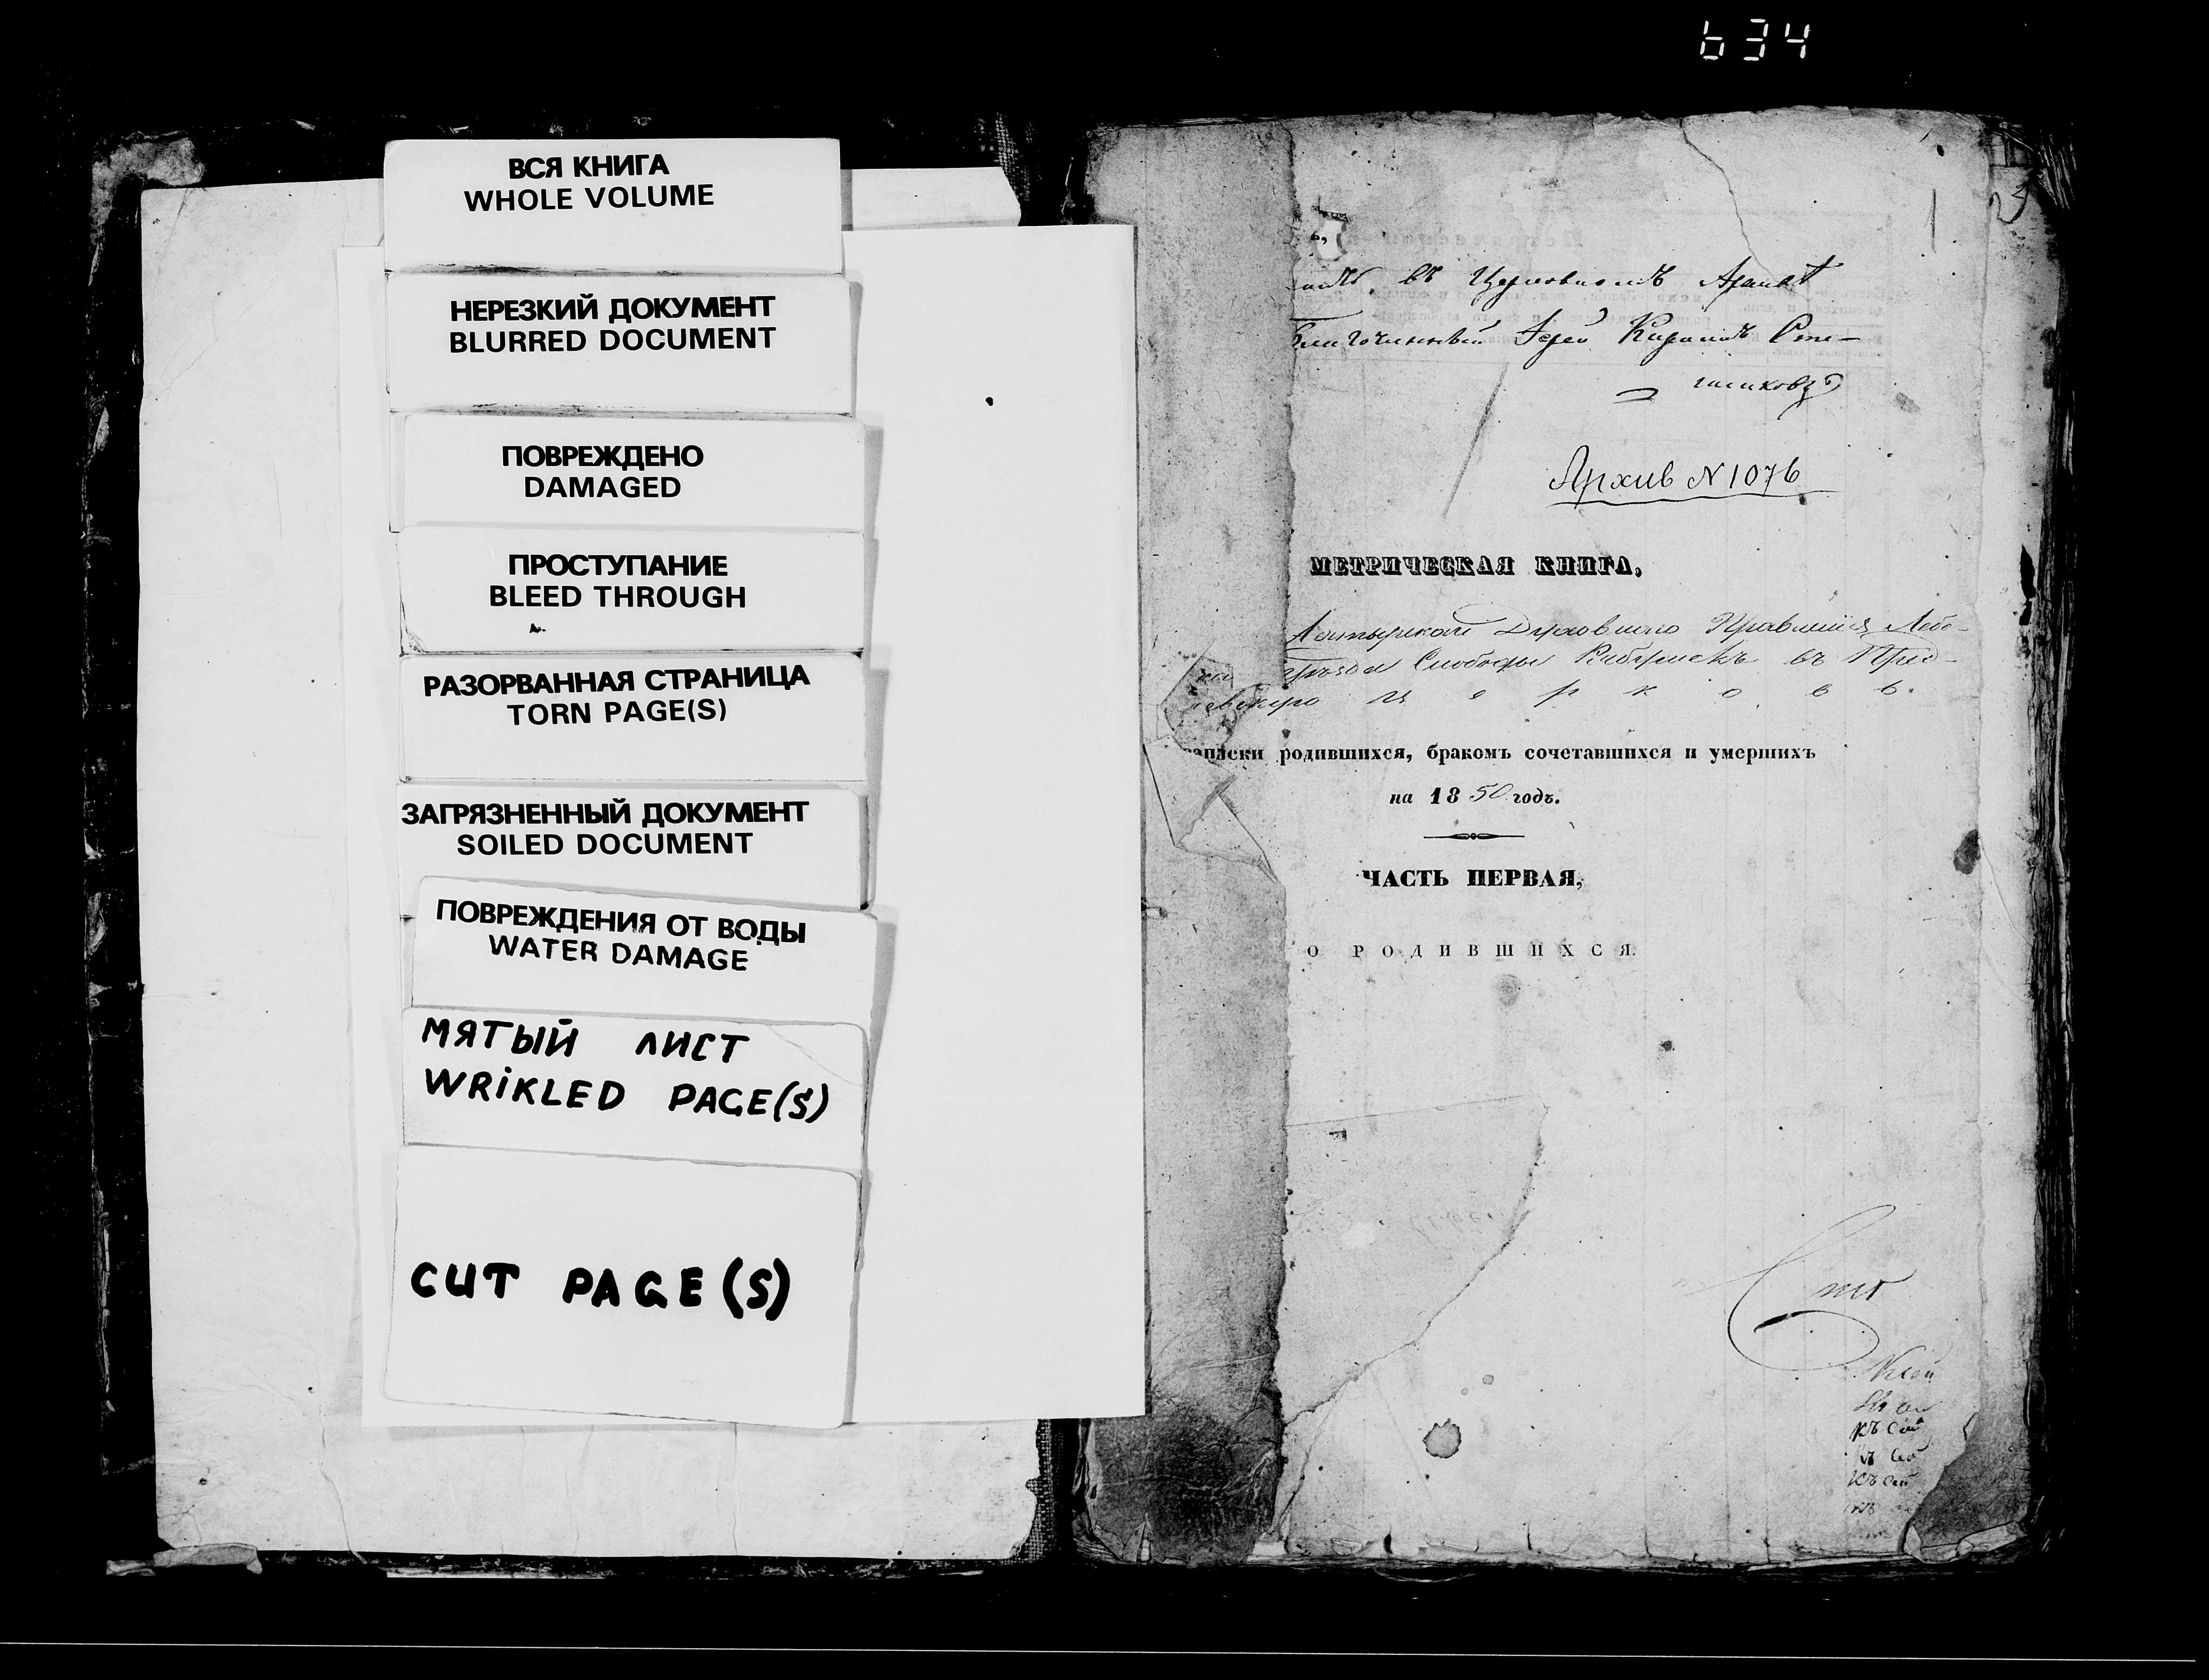 634
ВСЯ КНИГА
WHOLE VOLUME
НЕРЕЗКИЙ ДОКУМЕНТ
BLURRED DOCUMENT
ПОВРЕЖДЕНО
DAMAGED
ПРОСТУПАНИЕ
BLEED THROUGH
РАЗОРВАННАЯ СТРАНИЦА
TORN PAGE(S)
ЗАГРЯЗНЕННЫЙ ДОКУМЕНТ
SOILED DOCUMENT
ПОВРЕЖДЕНИЯ ОТ ВОДЫ
WATER DAMAGE
МЯТЫЙ ЛИСТ
WRIKLED PAGE(S)
CUT PAGE(S)
1
въ Церковномъ Архивѣ
Благочинный Іерей
Архив N 1076
МЕТРИЧЕСКАЯ КНИГА,
Духовнаго Правленія Лебе-
Слободы въ
ц е р к о в ь.
записки родившихся, бракомъ сочетавшихся и умершихъ
на 1850 годъ.
ЧАСТЬ ПЕРВАЯ,
О РОДИВШИХСЯ.
къ сей
къ сей